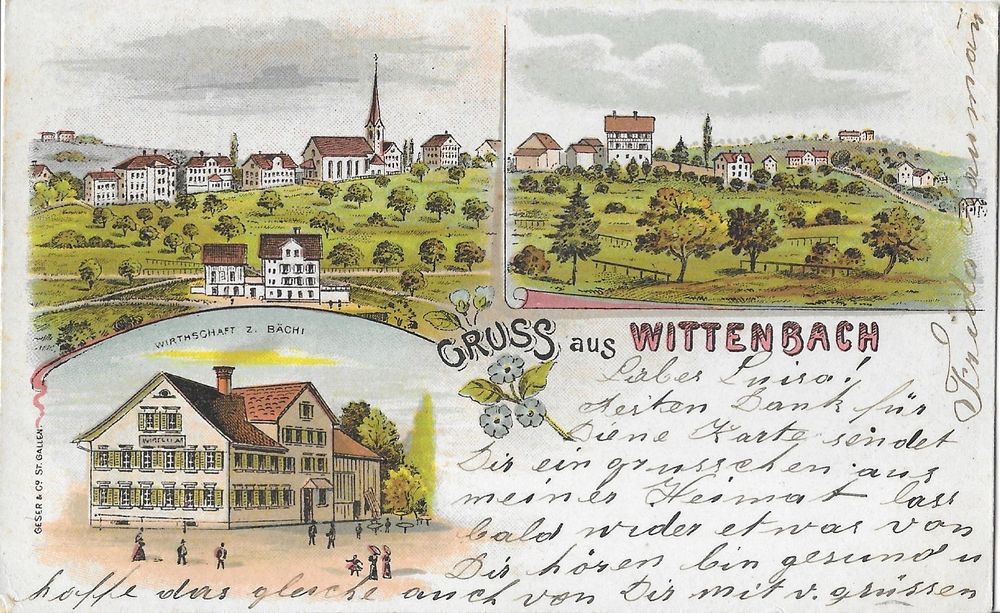 WIRTHSCHAFT Z. BÄCHI
GRUSS aus WITTENBACH
GESER & Co ST. GALLEN.
Lieber Luisa!
Besten Dank für
Diene Karte sendet
Dir ein grusschen aus
meiner Heimat lass
bald wider etwas von
Dir hören bin gesund u
hoffe das gleiche auch von Dir mit v. grüssen
Frida